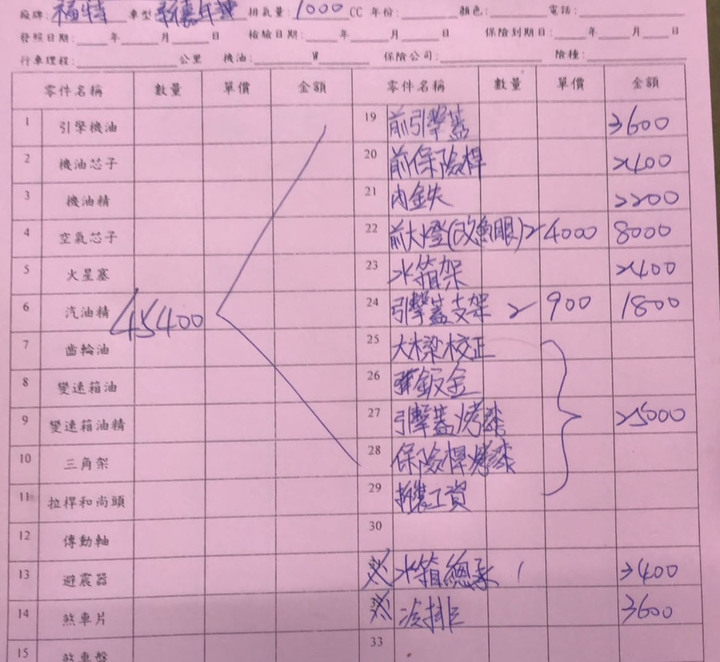 廠牌:福特 車型: 排氣量:1000CC 年份: 顏色: 電話:
發照日期: 年 月 日 檢驗日期: 年 月 日 保險到期日: 年 月 日
行車理程: 公里 機油: W 保險公司: 險種:
零件名稱 數量 單價 金額 零件名稱 數量 單價 金額
1 引擎機油 19 前引擎蓋 3600
2 機油芯子 20 前保險桿 2400
3 機油精 21 內鉄 2200
4 空氣芯子 22 前大燈(改魚眼) 2 4000 8000
5 火星塞 23 水箱架 2400
6 汽油精 45400 24 引擎蓋支架 2 900 1800
7 齒輪油 25 大樑校正
8 變速箱油 26 鈑金
9 變速箱油精 27 引擎蓋烤漆 25000
10 三角架 28 保險桿烤漆
11 拉桿和尚頭 29 拆裝工資
12 傳動軸 30
13 避震器 水箱總承 1 3400
14 煞車片 冷排 3600
15 煞車盤 33